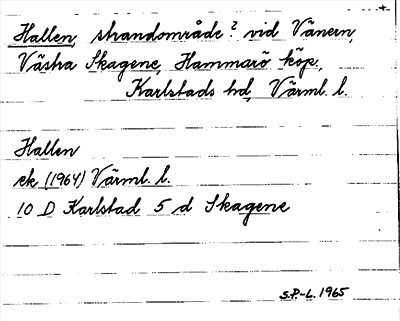 Hallen, strandområde? vid Vänern,
Västra Skagene, Hammarö köp.,
Karlstads hd, Värml. l.
Hallen
ek (1964) Värml. l.
10 D Karlstad 5 d Skagene
S.P-L. 1965